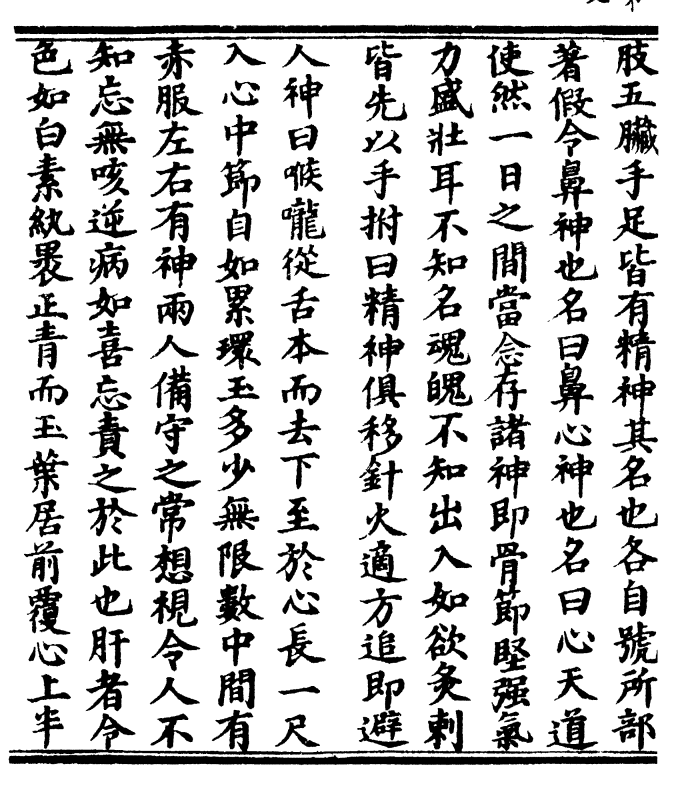 肢五臟手足皆有精神其名也各自號所部
著假令鼻神也名曰鼻心神也名曰心天道
使然一日之間當念存諸神即骨節堅强氣
力盛壯耳不知名魂魄不知出入如欲灸刺
皆先以手拊曰精神俱移針火適方追即避
人神曰喉嚨從舌本而去下至於心長一尺
入心中節自如累環玉多少無限數中間有
赤服左右有神兩人備守之常想視令人不
知忘無咳逆病如喜忘責之於此也肝者令
色如白素紈裹正青而玉葉居前覆心上半